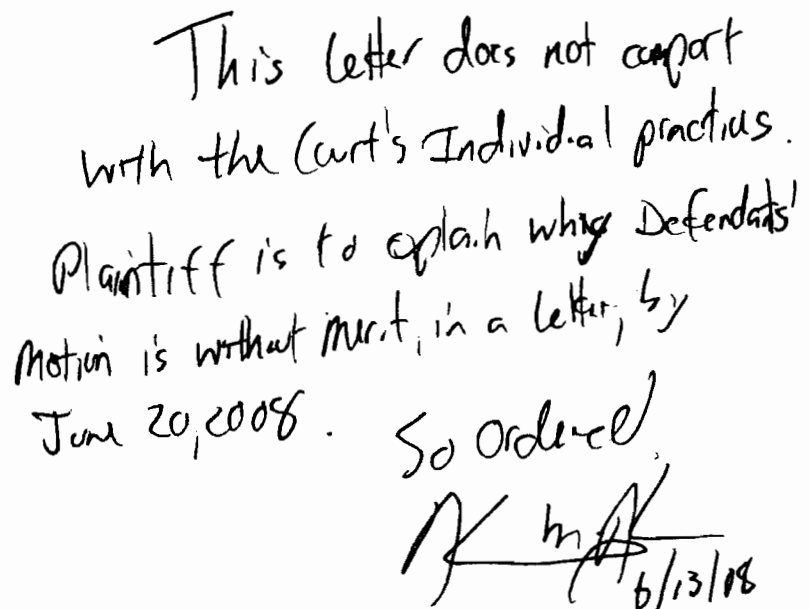 This letter does not comport
with the Court's Individual practices.
Plaintiff is to explain why Defendants'
motion is without merit, in a letter, by
June 20, 2008.
So Ordered.
6/13/08